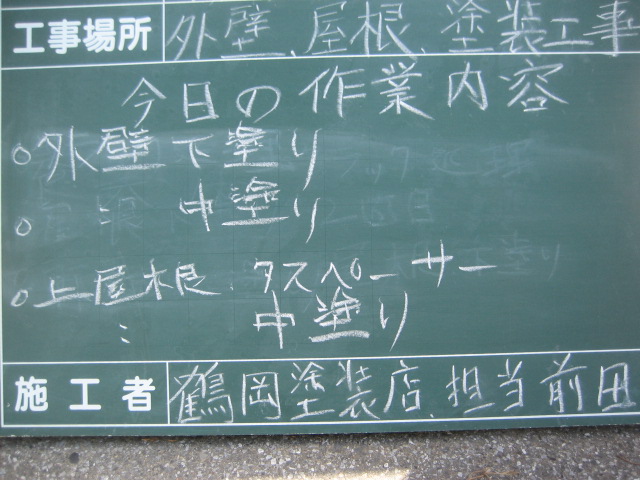 工事場所 外壁、屋根、塗装工事
今日の作業内容
○外壁下塗り
○ 〃 中塗り
○上屋根、タスペーサー
〃 中塗り
施工者 鶴岡塗装店、担当前田